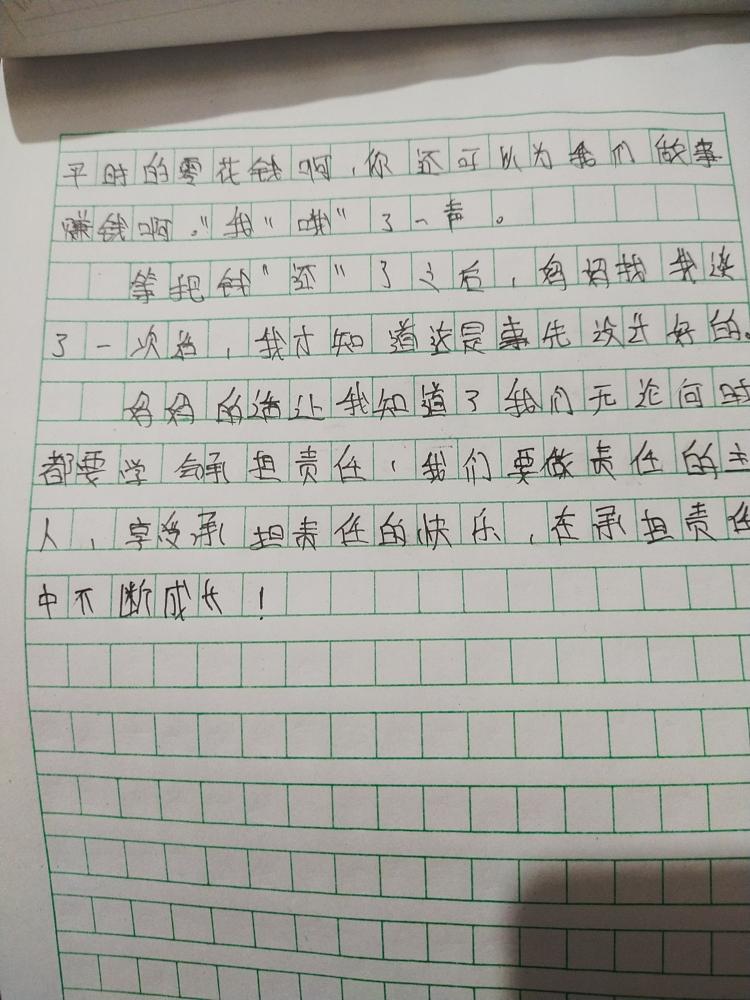 平时的零花钱啊，你还可以为我们做事
赚钱啊。"我"哦"了一声。
等把钱"还"了之后，妈妈找我谈
了一次话，我才知道这是事先设计好的。
妈妈的话让我知道了我们无论何时
都要学会承担责任，我们要做责任的主
人，享受承担责任的快乐，在承担责任
中不断成长！